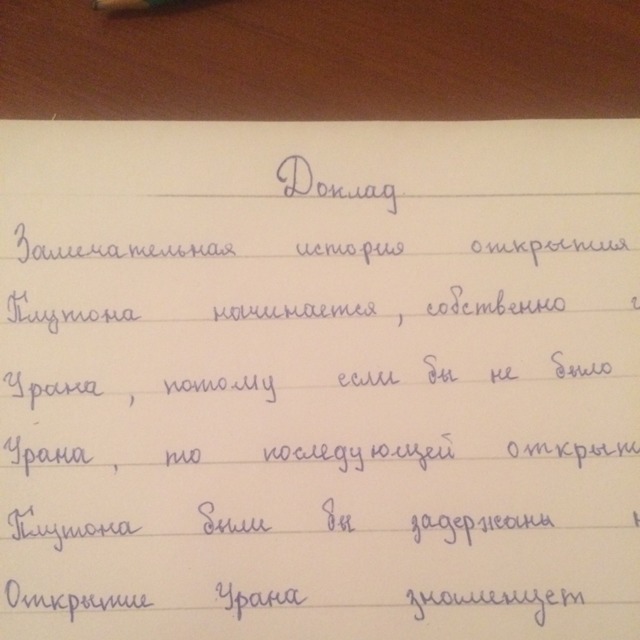 Доклад
Замечательная история открытия
Плутона начинается, собственно
Урана, потому если бы не было
Урана, то последующей
Плутона были бы задержаны
Открытие Урана знаменует